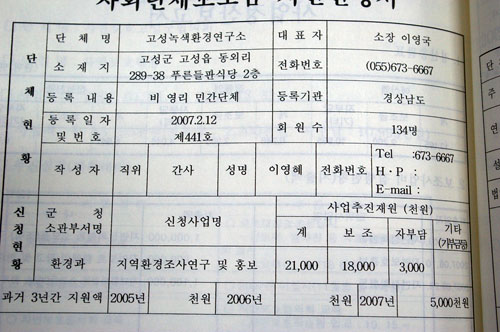 단체현황
단 체 명 고성녹색환경연구소 대 표 자 소장 이영국
소 재 지 고성군 고성읍 동외리 289-38 푸른들판식당 2층 전화번호 (055)673-6667
등 록 내 용 비 영리 민간단체 등록기관 경상남도
등 록 일 자 및 번 호 2007.2.12 제441호 회 원 수 134명
작 성 자 직위 간사 성명 이영혜 전화번호 Tel :673-6667
H·P :
E-mail :
신청현황
군 청 소관부서명 신청사업명 사업추진재원 (천원)
계 보 조 자부담 기타 (기부금등)
환경과 지역환경조사연구 및 홍보 21,000 18,000 3,000
과거 3년간 지원액 2005년 천원 2006년 천원 2007년 5,000천원
단
주
연
설
법